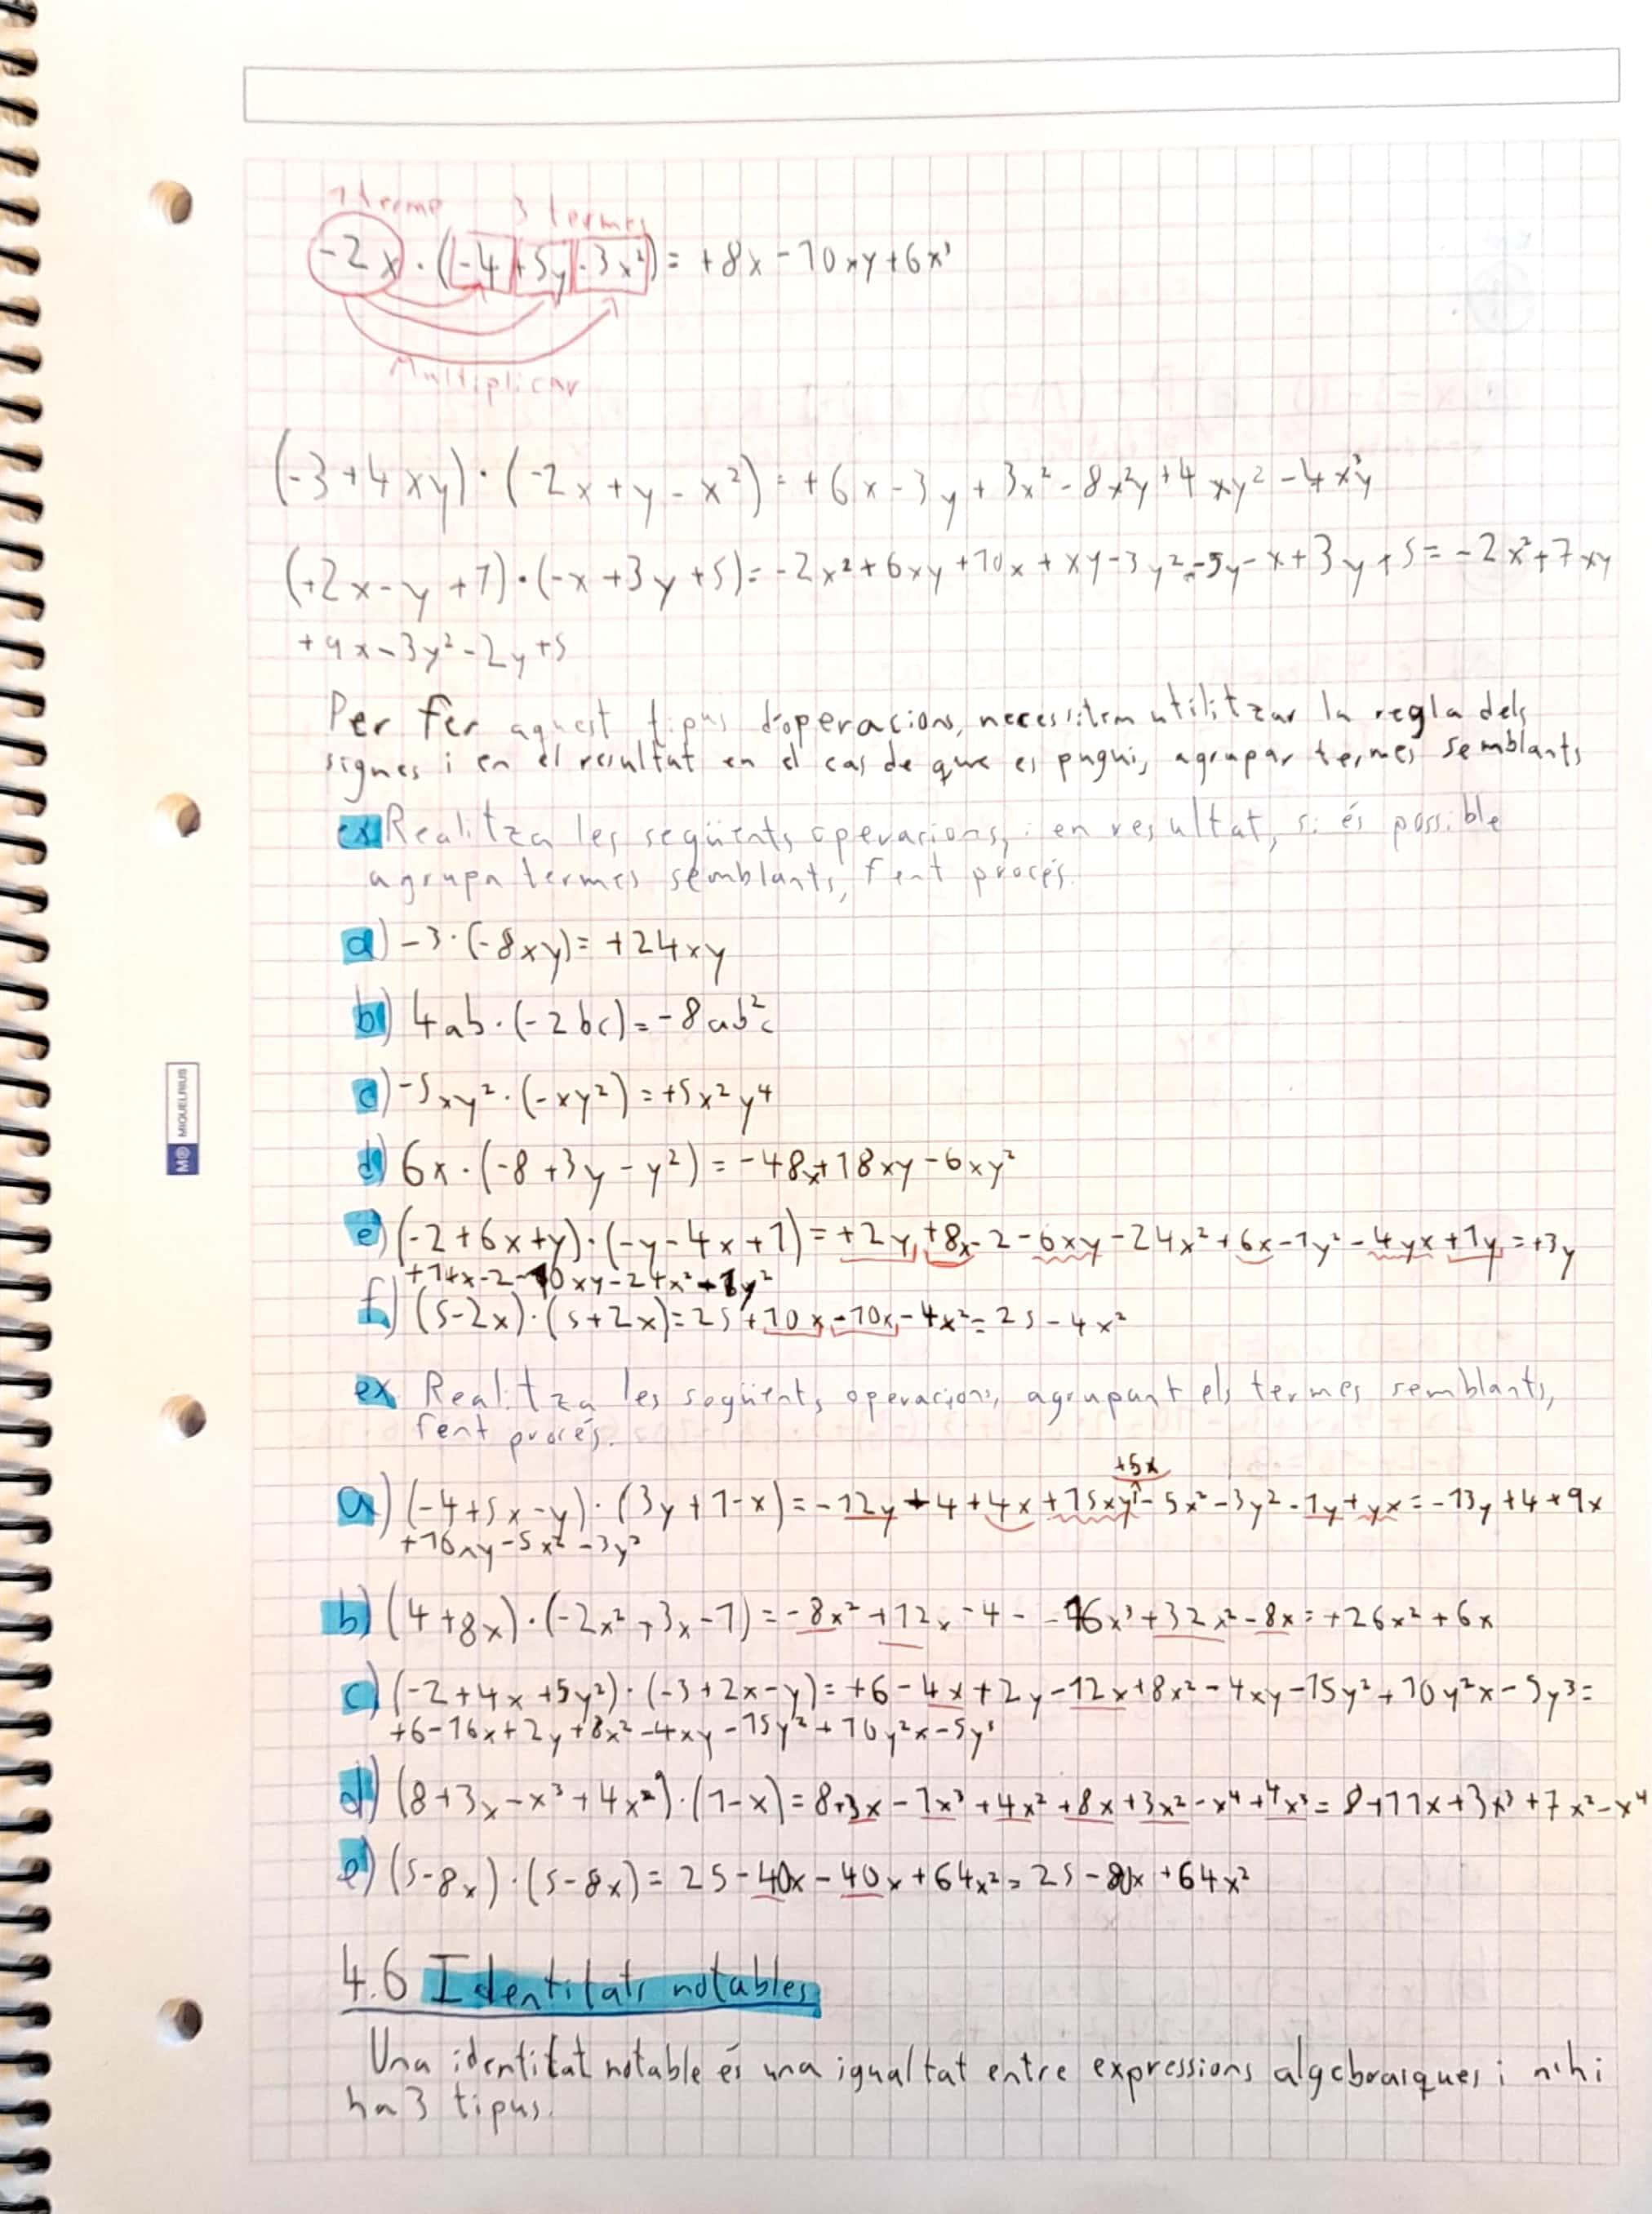 1 terme 3 termes
-2x · (-4+5y-3x²) = +8x-10xy+6x³
Multiplicar
(-3+4xy) · (-2x+y-x²) = +6x-3y+3x²-8x²y+4xy²-4x³y
(+2x-y+1) · (-x+3y+5) = -2x²+6xy+10x+xy-3y²-5y-x+3y+5 = -2x²+7xy
+9x-3y²-2y+5
Per fer aquest tipus d'operacions, necessitem utilitzar la regla dels
signes i en el resultat en el cas de que es pugui, agrupar termes semblants
ex Realitza les següents operacions, i en resultat, si és possible
agrupa termes semblants, fent procés.
a) -3·(-8xy) = +24xy
b) 4ab·(-2bc) = -8ab²c
c) -5xy²·(-xy²) = +5x²y⁴
d) 6x·(-8+3y-y²) = -48x+18xy-6xy²
e) (-2+6x+y)·(-y-4x+1) = +2y+8x-2-6xy-24x²+6x-1y²-4yx+1y = +3y
+14x-2-10xy-24x²-1y²
f) (5-2x)·(5+2x) = 25+10x-10x-4x² = 25-4x²
ex Realitza les següents operacions, agrupant els termes semblants,
fent procés.
+5x
a) (-4+5x-y)·(3y+1-x) = -12y+4+4x+15xy-5x²-3y²-1y+yx = -13y+4+9x
+16xy-5x²-3y²
b) (4+8x)·(-2x²+3x-1) = -8x²+12x-4- -16x³+32x²-8x = +26x²+6x
c) (-2+4x+5y²)·(-3+2x-y) = +6-4x+2y-12x+8x²-4xy-15y²+10y²x-5y³ =
+6-16x+2y+8x²-4xy-15y²+10y²x-5y³
d) (8+3x-x³+4x²)·(1-x) = 8+3x-1x³+4x²+8x+3x²-x⁴+4x³ = 8+11x+3x³+7x²-x⁴
e) (5-8x)·(5-8x) = 25-40x-40x+64x² = 25-80x+64x²
4.6 Identitats notables
Una identitat notable és una igualtat entre expressions algebraiques i n'hi
ha 3 tipus.
MIQUELRIUS